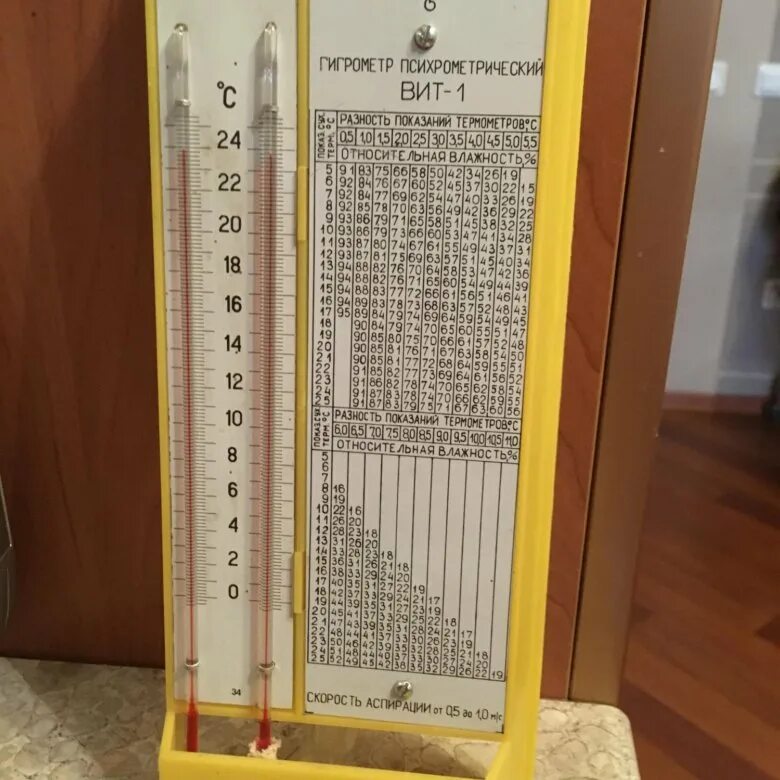 б
ГИГРОМЕТР ПСИХРОМЕТРИЧЕСКИЙ
ВИТ-1
°C
24
22
20
18
16
14
12
10
8
6
4
2
0
34
ПОКАЗ.СУХ. ТЕРМ. °С
РАЗНОСТЬ ПОКАЗАНИЙ ТЕРМОМЕТРОВ,°С
0,5 1,0 1,5 2,0 2,5 3,0 3,5 4,0 4,5 5,0 5,5
ОТНОСИТЕЛЬНАЯ ВЛАЖНОСТЬ,%
5 91 83 75 66 58 50 42 34 26 19
6 92 84 76 67 60 52 45 37 30 22 15
7 92 84 77 69 62 54 47 40 33 26 19
8 92 85 78 70 63 56 49 42 36 29 22
9 93 86 79 71 65 58 51 45 38 32 25
10 93 86 79 73 66 60 53 47 41 34 28
11 93 87 80 74 67 61 55 49 43 37 31
12 93 87 81 75 69 63 57 51 45 40 34
13 94 88 82 76 70 64 58 53 47 42 36
14 94 88 82 76 71 65 60 54 49 44 39
15 94 88 83 77 72 66 61 56 51 46 41
16 94 89 83 78 73 68 63 57 52 48 43
17 95 89 84 79 74 69 64 59 54 49 45
18 90 84 79 74 70 65 60 55 51 47
19 90 85 80 75
20 90 85 81 76 71 67 63 58
21 90 85 81 77 72 68 64
22 91 85 82 77 73 69 64 61
23 91 86 82 78 74 70 65 62 58
24
25 91 87 83 79 75 71 67 63 60 56
ПОКАЗ.СУХ. ТЕРМ. °С
РАЗНОСТЬ ПОКАЗАНИЙ ТЕРМОМЕТРОВ,°С
6,0 6,5 7,0 7,5 8,0 8,5 9,0 9,5 10,0 10,5 11,0
ОТНОСИТЕЛЬНАЯ ВЛАЖНОСТЬ,%
5
6
7
8 16
9 19
10 22 16
11 26 20
12 28 23 18
13 31 26 20
14 33 28 23 18
15 36 31 26 21 18
16 38 33 29 24 20
17 40 35 31 27 22 19
18 42 37 33 29 24 21 17
19 44 39 35 31 27 23 19
20 45 41 37 33 29 25 22 18
21 47 43 39 35 31 28 24 21 17
22 48 44 41 37 33 30 26 23 19
23 50 46 42 39 35 32 28 25 21 18
24 51 48 44 40 37 33 30 27 24 20
25 52 49 45 42 38 35 32 29 26 22 19
СКОРОСТЬ АСПИРАЦИИ от 0,5 до 1,0 м/с